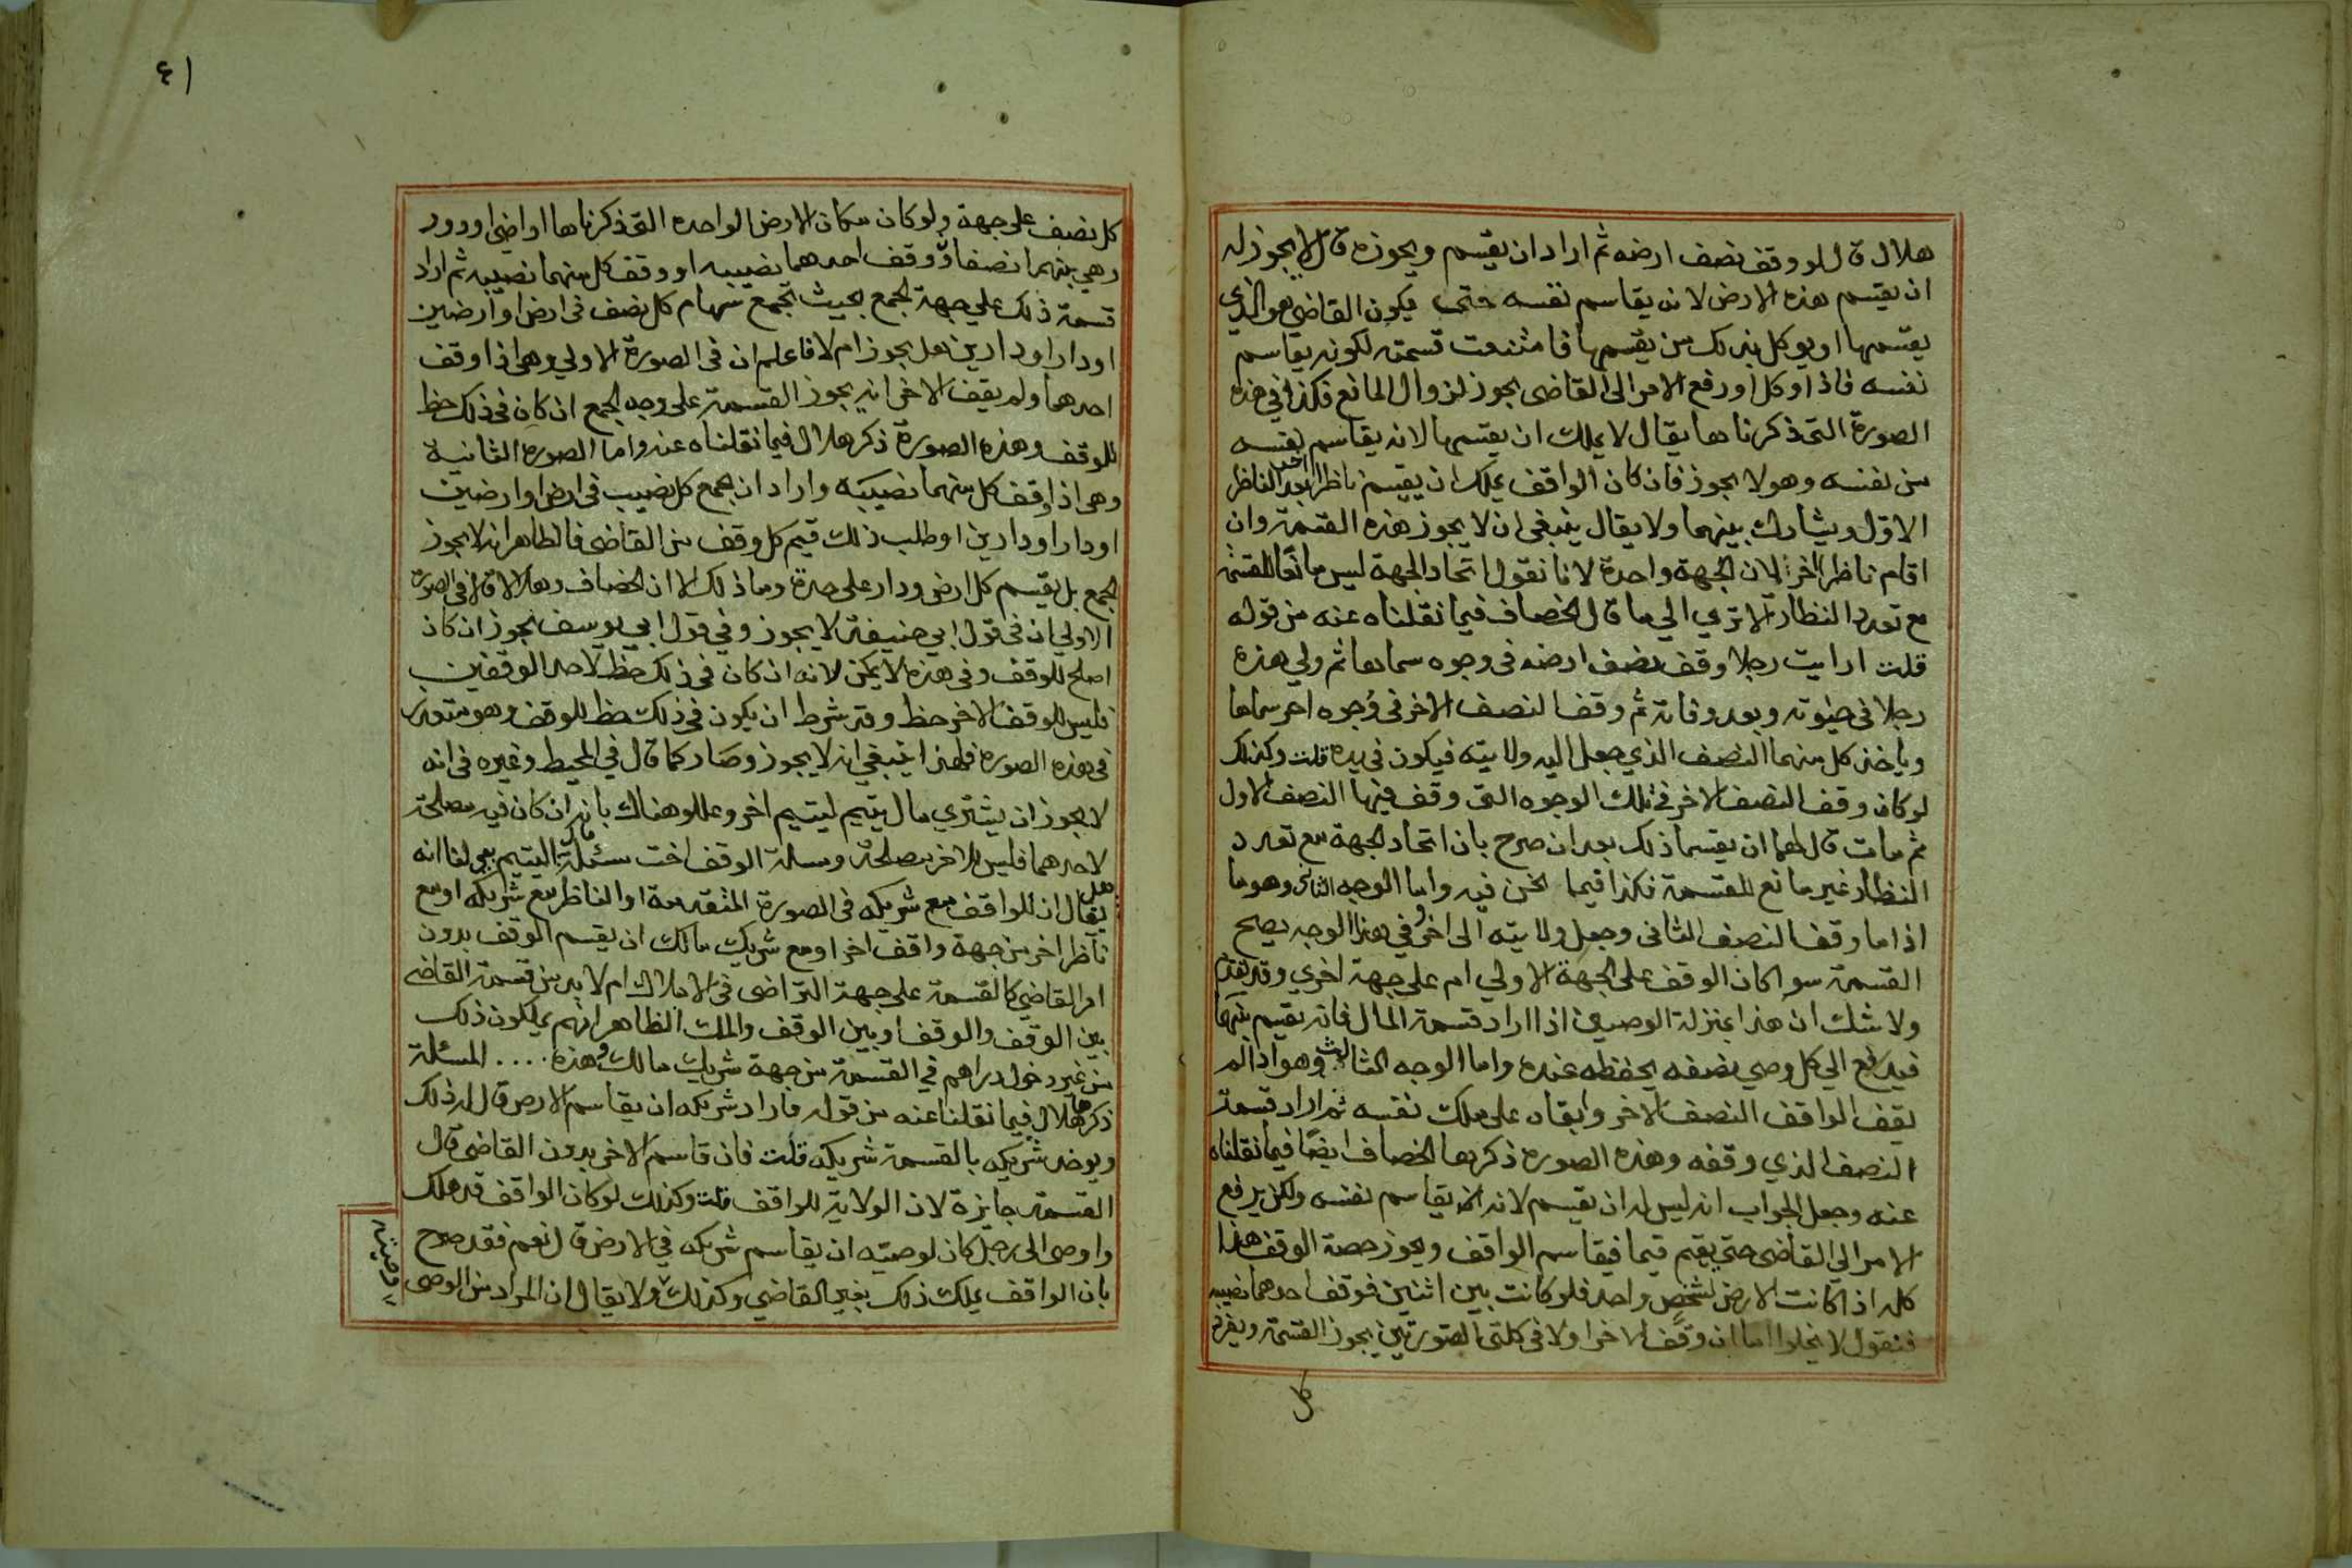 هلال قال لو وقف نصف ارضه ثم اراد ان يقسم ويحوزه قال لا يجوز له
ان يقسم هذه الارض لانه يقاسم نفسه حتى يكون القاضي هو الذي
يقسمها او يوكل بذلك من يقسمها فامتنعت قسمته لكونه يقاسم
نفسه فاذا وكل او رفع الامر الى القاضي يجوز لزوال المانع فكذا في هذه
الصورة التي ذكرناها يقال لا يملك ان يقسمها لانه يقاسم نفسه
من نفسه وهو لا يجوز فان كان الواقف يملك ان يقيم ناظرا اخر بعد الناظر
الاول ويشارك بينهما ولا يقال ينبغي ان لا يجوز هذه القسمة وان
اقام ناظرا اخر لان الجهة واحدة لانا نقول اتحاد الجهة ليس مانعا للقسمة
مع تعدد النظار الا تري الي ما قال الخصاف فيما نقلناه عنه من قوله
قلت ارايت رجلا وقف نصف ارضه في وجوه سماها ثم ولي هذه
رجلا في حيوته وبعد وفاته ثم وقف النصف الاخر في وجوه اخر سماها
وياخذ كل منهما النصف الذي جعل اليه ولايته فيكون في يده قلت وكذلك
لو كان وقف النصف الاخر في تلك الوجوه التي وقف فيها النصف الاول
ثم مات قال لهما ان يقسما ذلك بعد ان صرح بان اتحاد الجهة مع تعدد
النظار غير مانع للقسمة فكذا فيما نحن فيه واما الوجه الثاني وهو ما
اذا ما وقف النصف الثاني وجعل ولايته الى اخر وفي هذا الوجه يصح
القسمة سوا كان الوقف على الجهة الاولي ام على جهة اخري وقد
ولا شك ان هذا بمنزلة الوصيين اذا اراد قسمة المال فانه يقسم بينهما
فيدفع الي كل وصي نصفه يحفظه عنده واما الوجه الثالث وهو اذا لم
يقف الواقف النصف الاخر وابقاه على ملك نفسه ثم اراد قسمة
النصف الذي وقفه وهذه الصورة ذكرها الخصاف ايضا فيما نقلناه
عنه وجعل الجواب انه ليس له ان يقسم لانه انما يقاسم نفسه ولكن يرفع
الامر الي القاضي حتى يقيم قيما فيقاسم الواقف ويحوز حصة الوقف هذا
كله اذا كانت الارض لشخص واحد فلو كانت بين اثنين فوقف احدهما نصيبه
فنقول لا يخلوا اما ان وقف الاخر او لا في كلتى الصورتين يجوز القسمة ويفرز
كل
٤١
كل نصف على جهة ولو كان مكان الارض الواحده التي ذكرناها اراضي او دور
وهي بينهما نصفان ووقف احدهما نصيبه او وقف كل منهما نصيبه ثم اراد
قسمة ذلك علي جهة الجمع بحيث يجمع سهام كل نصف في ارض او ارضين
او دار او دارين هل يجوز ام لا فاعلم ان في الصورة الاولي وهي اذا وقف
احدهما ولم يقف الاخر انه يجوز القسمة على وجه الجمع ان كان في ذلك حظ
للوقف وهذه الصورة ذكر هلال فيما نقلناه عنه واما الصورة الثانية
وهي اذا وقف كل منهما نصيبه واراد ان يجمع كل نصيب في ارض او ارضين
او دار او دارين او طلب ذلك قيم كل وقف من القاضي فالظاهر انه لا يجوز
الجمع بل يقسم كل ارض ودار على حدة وما ذلك الا ان الخصاف وهلالا قالا في الصورة
الاولي ان في قول ابي حنيفة لا يجوز وفي قول ابي يوسف يجوز ان كان
اصلح للوقف وفي هذه لا يمكن لانه ان كان في ذلك حظ لاحد الوقفين
فليس للوقف الاخر حظ وقد شرط ان يكون في ذلك حظ للوقف وهو متعذر
في هذه الصورة فلهذا ينبغي انه لا يجوز وصار كما قال في المحيط وغيره في انه
لا يجوز ان يشتري مال يتيم ليتيم اخر وعللو هناك بانه ان كان فيه مصلحة
لاحدهما فليس للاخر مصلحة ومسلة الوقف اخت مسئلة اليتيم بقي لنا انه
هل يقال ان للواقف مع شريكه في الصورة المتقدمة او الناظر مع شريكه او مع
ناظر اخر من جهة واقف اخر او مع شريك مالك ان يقسم الوقف بدون
امر القاضي كالقسمة على جهة التراضي في الاملاك ام لا بد من قسمة القاضي
بين الوقف والوقف او بين الوقف والملك الظاهر انهم يملكون ذلك
من غير دخول دراهم في القسمة من جهة شريك مالك وهذه .... المسئلة
ذكرها هلال فيما نقلنا عنه من قوله فاراد شريكه ان يقاسم الارض قال له ذلك
ويوخذ شريكه بالقسمة شريكه قلت فان قاسم الاخر بدون القاضي قال
القسمة جايزة لان الولاية للواقف قلت وكذلك لو كان الواقف قد هلك
واوصى الى رجل كان لوصيه ان يقاسم شريكه في الارض قال نعم فقد صرح
بان الواقف يملك ذلك بغير القاضي وكذلك ولا يقال ان المراد من الوصى